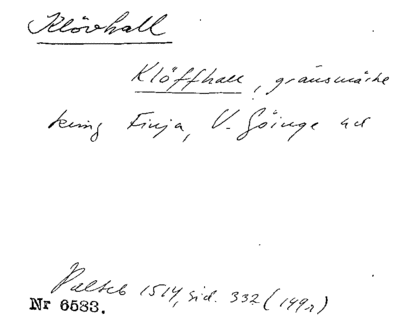 Klövhall
Klöffhall, gränsmärke
kring Finja, V. Göinge hd
Paltsb 1514, sid. 332 (149r)
Nr 6583.